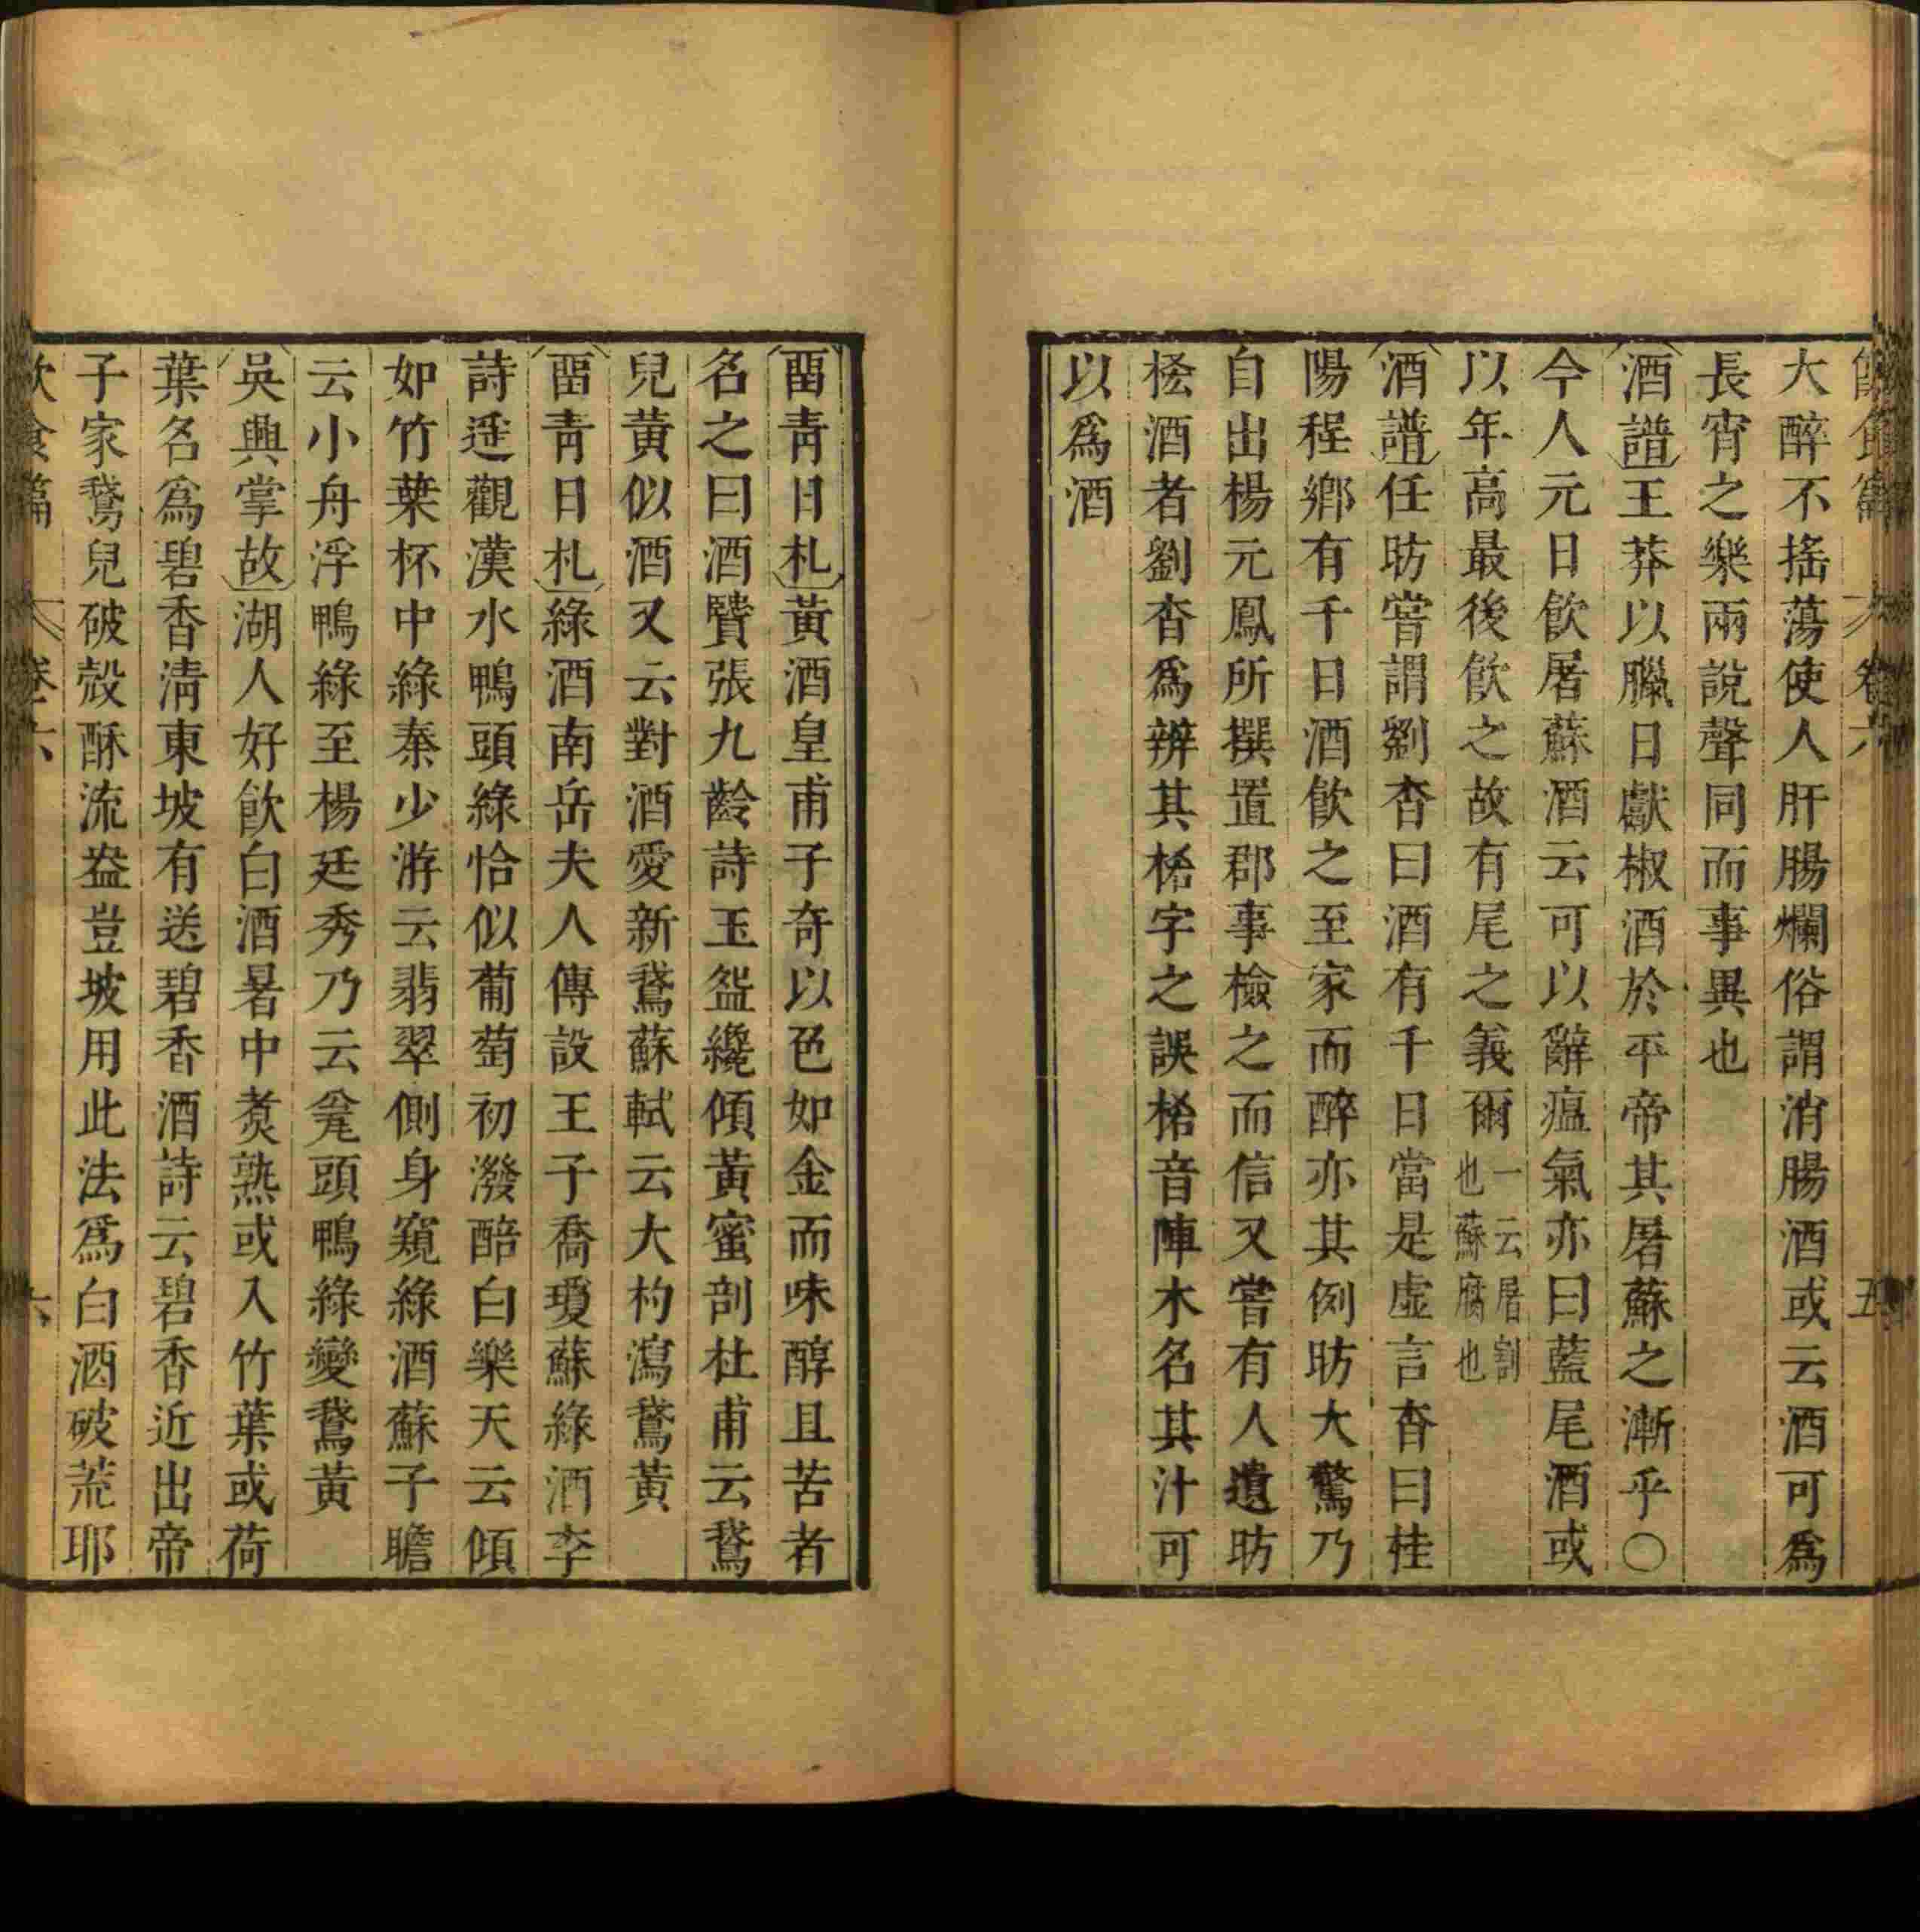 大醉不搖蕩使人肝腸爛俗謂消腸酒或云酒可爲
長宵之樂兩說聲同而事異也
酒譜王莽以臘日獻椒酒於平帝其屠蘇之漸乎〇
今人元日飮屠蘇酒云可以辭瘟氣亦曰藍尾酒或
以年高最後飮之故有尾之義爾一云屠割也蘇腐也
酒譜任昉嘗謂劉杳曰酒有千日當是虛言杳曰桂
陽程鄉有千日酒飮之至家而醉亦其例昉大驚乃
自出楊元鳳所撰置郡事檢之而信又嘗有人遺昉
桜酒者劉杳爲辨其榙字之誤榙音陣木名其汁可
以爲酒
畱靑日札黃酒皇甫子奇以色如金而味醇且苦者
名之曰酒賢張九齡詩玉盌纔傾黃蜜剖杜甫云鵞
兒黃似酒又云對酒愛新鵞蘇軾云大杓瀉鵞黃
畱靑日札綠酒南岳夫人傳設王子喬瓊蘇綠酒李
詩遥觀漢水鴨頭綠恰似葡萄初潑醅白樂天云傾
如竹葉杯中綠秦少游云翡翠側身窺綠酒蘇子瞻
云小舟浮鴨綠至楊廷秀乃云瓮頭鴨綠變鵞黃
吳興掌故湖人好飮白酒暑中煑熟或入竹葉或荷
葉名爲碧香淸東坡有送碧香酒詩云碧香近出帝
子家鵞兒破殼酥流盎豈坡用此法爲白酒破荒耶
飮食篇 卷六 六